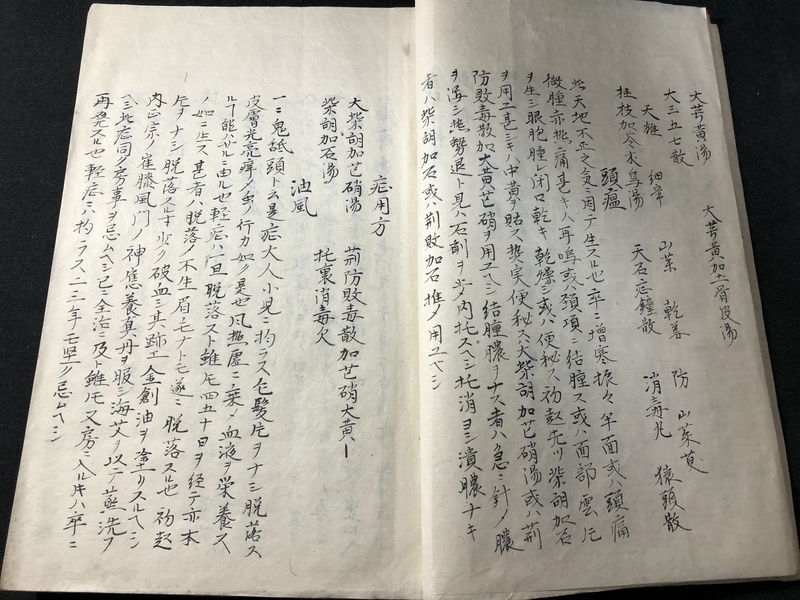 大芎黄湯　大芎黄加二骨皮湯
大三五七散
天雄　細辛　山茱　乾姜　防　山茱萸
桂枝加苓朮烏湯　天石定鐘散　消毒丸　猿頭散
頭瘟
此天地不正之気ニ因テ生スル也卒ニ増寒振々半面或ハ頭痛
微腫赤熱痛甚キハ再鳴或頭項ニ結腫ス或ハ面部雲片
ヲ生シ眼胞腫レ閉口乾キ乾燥シ或ハ便秘ス初起先ツ柴胡加石
ヲ用ユ甚シキハ中黄ヲ貼ス熱実便秘ハ大柴胡加芒硝湯或ハ荊
防敗毒散加大黄芒硝ヲ用ユヘシ結腫膿ヲナス者ハ急ニ針ノ膿
ヲ海シ熱勢退ト見ハ石割ヲ少ノ内托スヘシ托消ヨシ潰膿ナキ
者ハ柴胡加石或ハ荊敗加石推メ用ユヘシ
症用方
大柴胡加芒硝湯　荊防敗毒散加芒硝大黄
柴胡加石湯　托裏消毒欠
油風
一ニ鬼舐頭ト云是症大人小児ニ拘ラス毛髪片ヲナシ脱落ス
皮膚光亮癢ノ虫ノ行カ如シ是也風熱虚ニ乗メ血液ヲ栄養ス
ル丁能ハサル由ル也軽症ハ一旦脱落スト雖モ四五十日ヲ経テ亦本
ノ如ニ生ス甚者ハ脱落ノ不生眉ノ毛ナトモ遂ニ脱落スル也初起
片ヲナシ脱落スル時少ク破血シ其跡エ金創油ヲ塗リスルヘシ
内正宗ノ崔膝風門ノ神應養真丹ヲ服シ海艾ヲ以テ蒸洗ヲ
ヘシ此症同ク房事ヲ忌ムヘシ已ニ全治ニ及ト雖モ又房ニ入ル時ハ卒ニ
再発スル也軽症ニハ拘ラス二三年モ堅ク忌ムヘシ